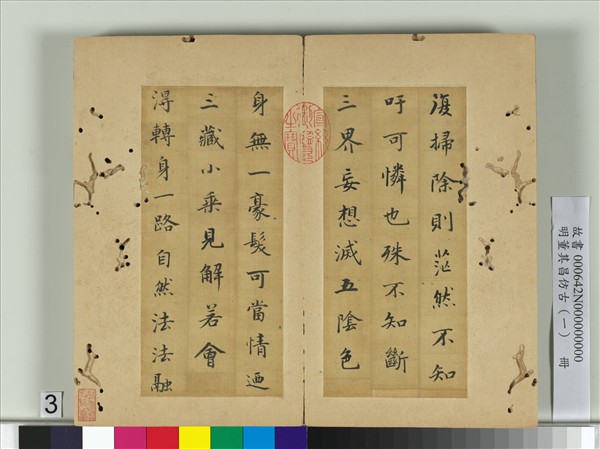 復掃除則茫然不知
吁可憐也殊不知斷
三界妄想滅五陰色
身無一豪髮可當情迺
三藏小乘見解若會
得轉身一路自然法法融
故書 000642N000000000
明董其昌仿古(一) 冊
3